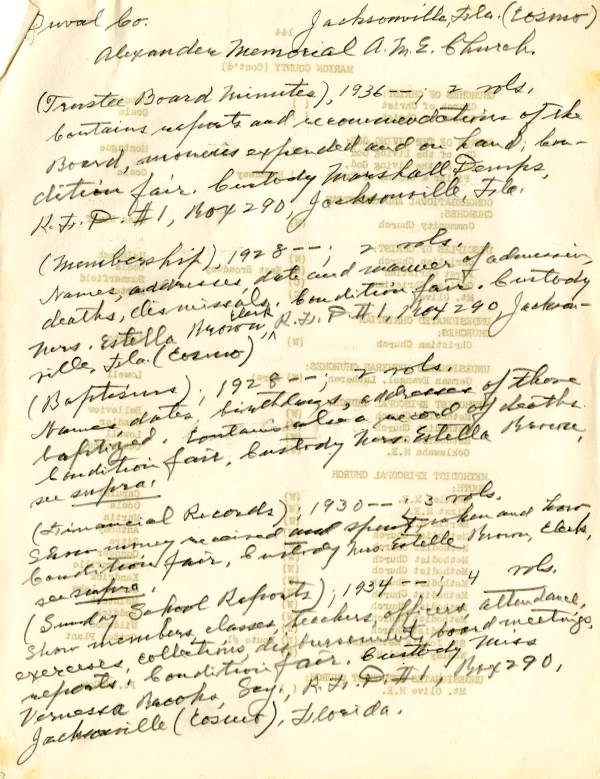 Duval Co. Jacksonville, Fla. (Cosmo)
Alexander Memorial A.M.E. Church.
(Trustee Board Minutes), 1936--; 2 vols.
Contains reports and recommendations of the
Board, moneies expended and on hand; Con-
dition fair. Custody Marshall Demps,
R.F.D. #1, Box 290, Jacksonville, Fla.
(Membership), 1928--; 2 vols.
Names, addresses, date and manner of admission,
deaths, dismissals. Condition fair. Custody
Mrs. Estella Brown, Clerk, R.F.D. #1, Box 290, Jackson-
ville, Fla. (Cosmo)
(Baptisms), 1928--; 2 vols.
Name, dates, birthdays, addresses of those
baptized. Contains also a record of deaths.
Condition fair. Custody Mrs. Estella Brown,
see supra.
(Financial Records), 1930--; 3 vols.
Show money received and spent, when and how.
Condition fair. Custody Mrs. Estelle Brown, Clerk,
see supra.
(Sunday School Reports), 1934--; 4 vols.
Show members, classes, teachers, officers, attendance,
exercises, collections, disbursements, board meetings,
reports. Condition fair. Custody Miss
Vernessa Brooks, Secy, R.F.D. #1, Box 290,
Jacksonville (Cosmo), Florida.